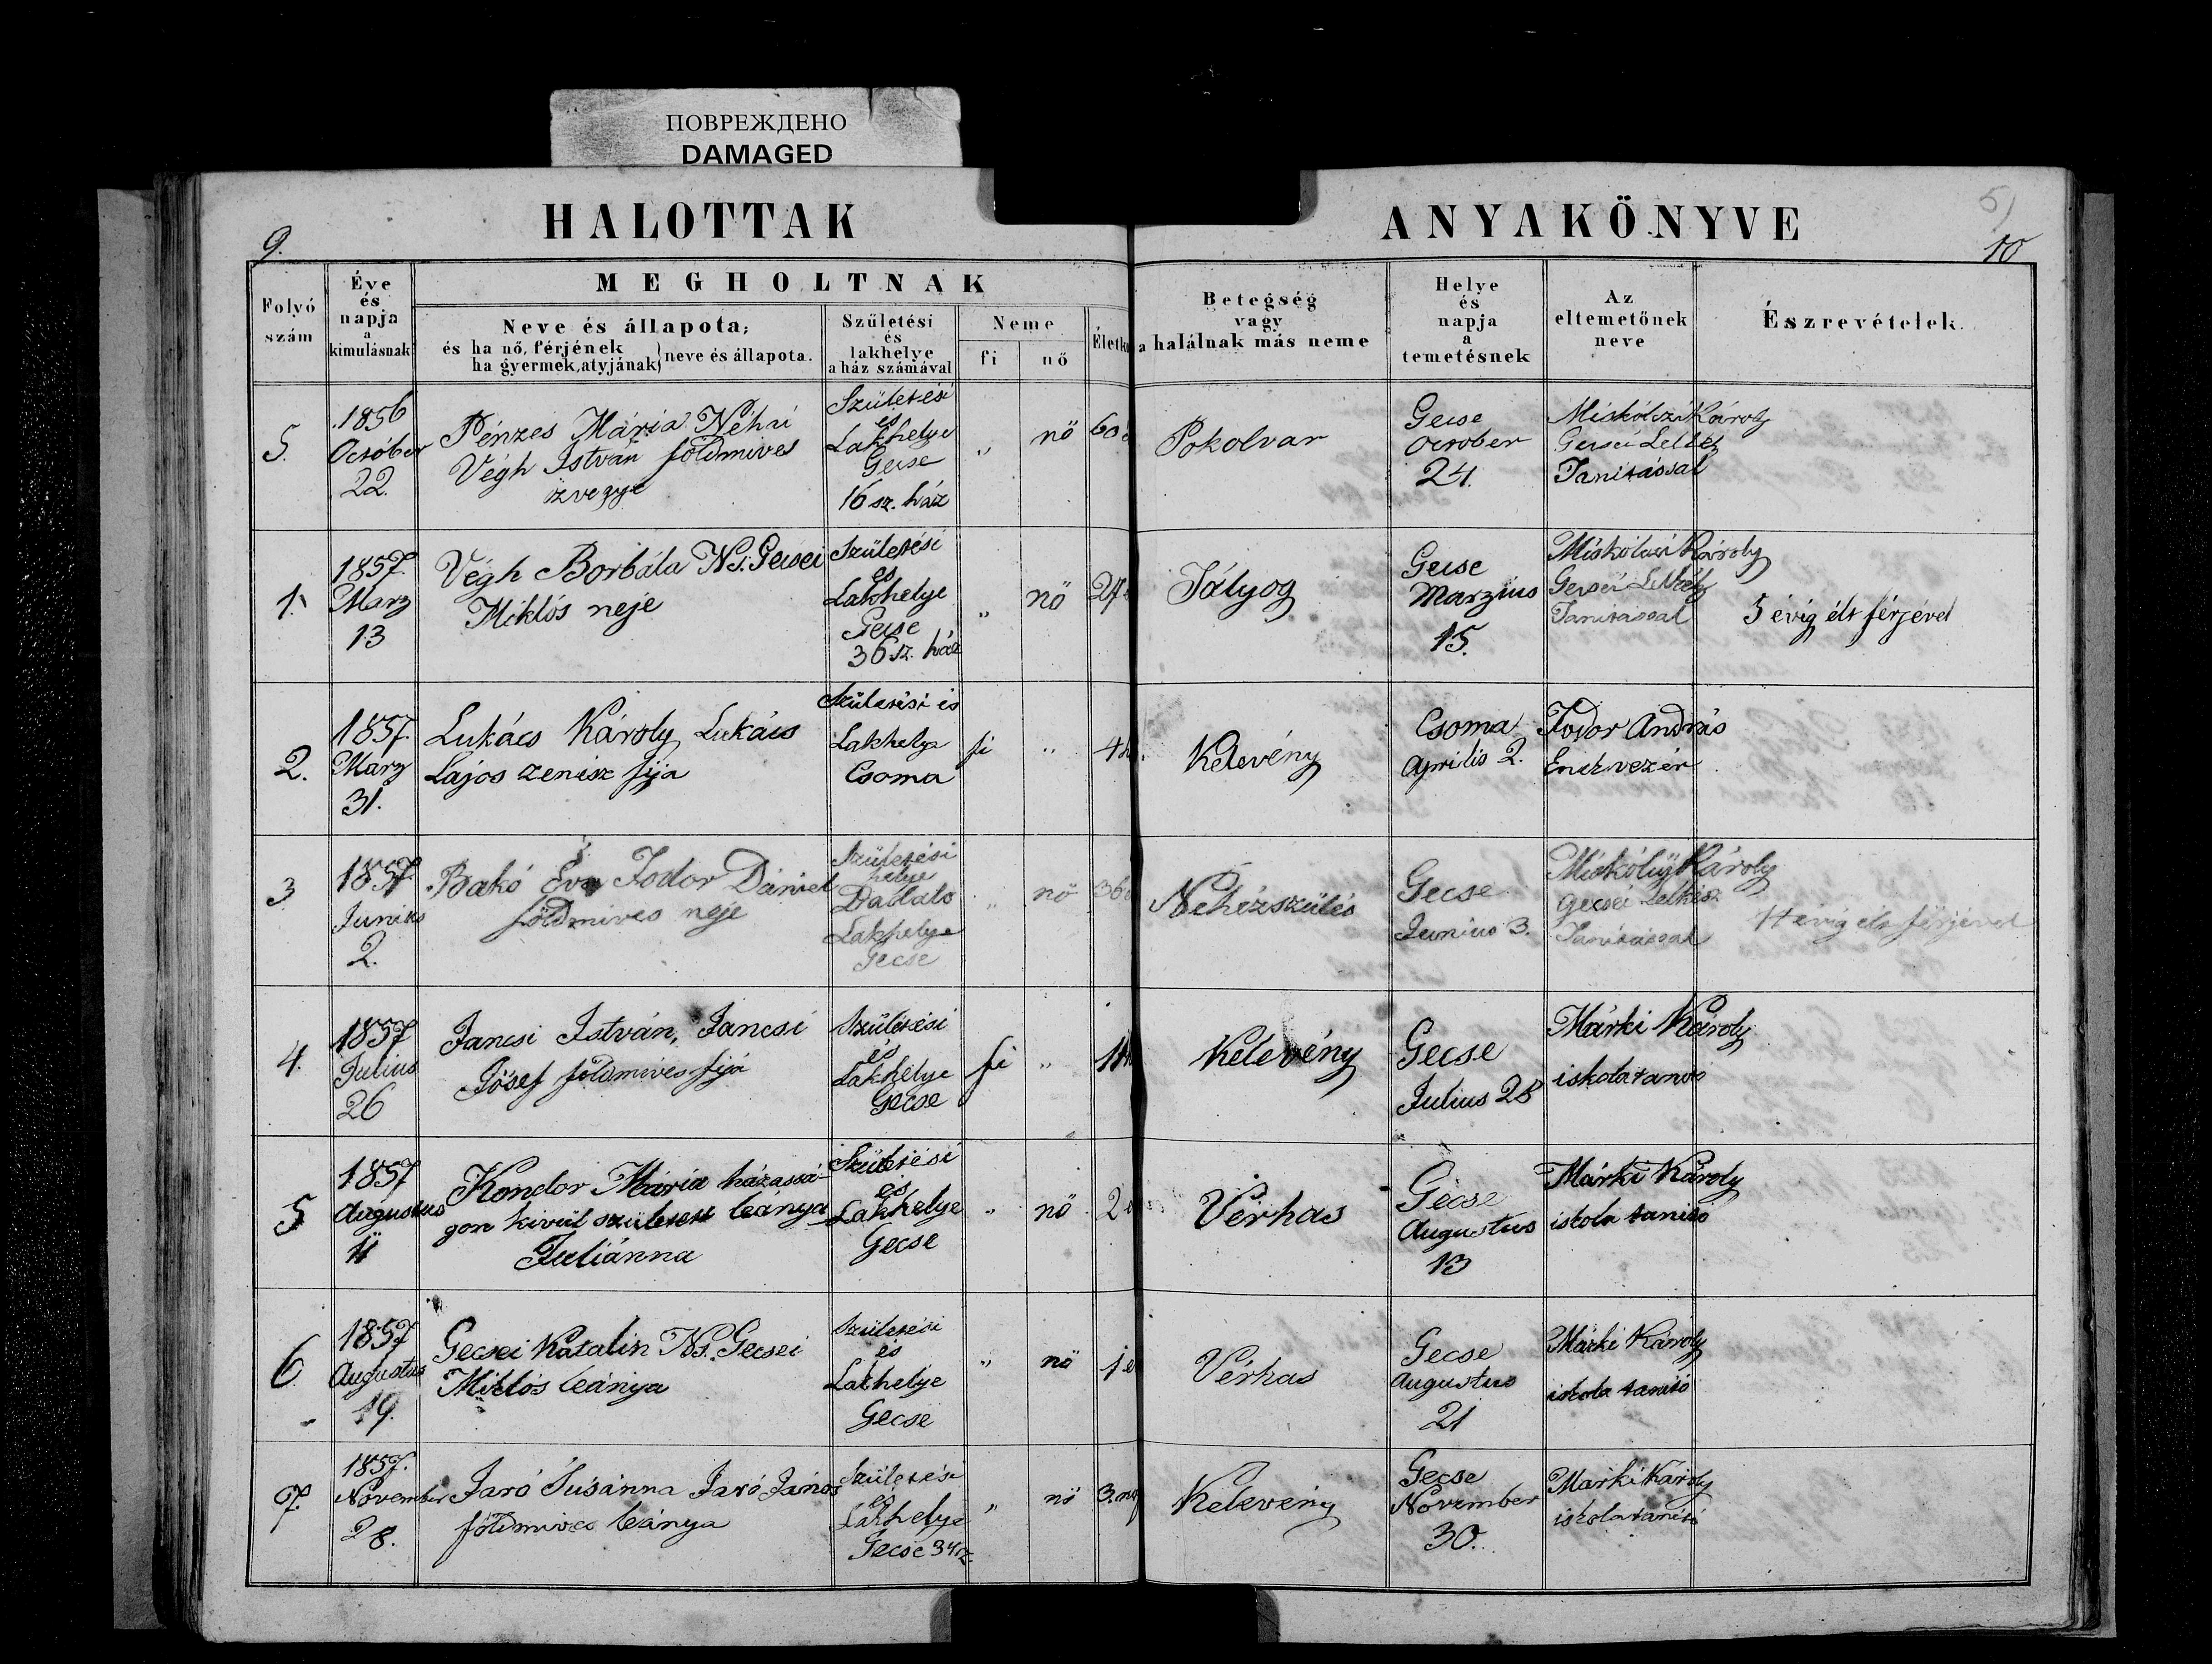 ПОВРЕЖДЕНО
DAMAGED
HALOTTAK
ANYAKÖNYVE
9.
5)
10
Folyó szám
Éve és napja a kimulásnak
MEGHOLTNAK
Neve és állapota;
és ha nő, férjének
ha gyermek, atyjának } neve és állapota.
Születési és lakhelye a ház számával
Neme
fi
nő
Életk
Betegség vagy a halálnak más neme
Helye és napja a temetésnek
Az eltemetőnek neve
Észrevételek.
5.
1856
October
22.
Pénzes Mária Néhai
Végh István földmives
özvegye
Születési
és
Lakhelye
Gecse
16 sz. ház
„
nö
60
Pokolvar
Gecse
October
24.
Miskolczi Károly
Gecsei Lelkész
Tanitással
1.
1857.
Marz
13
Végh Borbála Ns. Gecsei
Miklós neje
Születési
és
Lakhelye
Gecse
36 sz. ház
„
nö
27
Sályog
Gecse
Marzius
15.
Miskolczi Károly
Gecsei Lelkész
Tanitással
5 évig élt férjével
2.
1857.
Marz
31.
Lukács Károly Lukács
Lajos zenész fija
Születési és
Lakhelye
Csoma
fi
„
4 h.
Kelevény
Csoma
Aprilis 2.
Fodor András
Énekvezér
3
1857.
Junius
2.
Bakó Éva Fodor Dániel
földmives neje
Születési
helye
Lakhelye
Gecse
„
nö
36
Nehézszülés
Gecse
Junius 3.
Károly
Gecsei Lelkész
Tanitással
évig élt férjével
4.
1857
Julius
26
Jancsi István, Jancsi
Jósef földmives fija
Születési
és
Lakhelye
Gecse
fi
„
Kelevény
Gecse
Julius 28
Márki Károly
iskola tanitó
5
1857
Augustus
11
Kondor Mária házassá-
gon kivül született leánya
Juliánna
Születési
és
Lakhelye
Gecse
„
nö
2 é
Vérhas
Gecse
Augustus
13
Márki Károly
iskola tanitó
6.
1857
Augustus
19.
Gecsei Katalin Ns. Gecsei
Miklós leánya
Születési
és
Lakhelye
Gecse
„
nö
1 é
Vérhas
Gecse
Augustus
21
Márki Károly
iskola tanitó
7.
1857.
November
28.
Jaró Susánna Jaró János
földmives leánya
Születési
és
Lakhelye
Gecse 34 sz.
„
nö
3. nap
Kelevény
Gecse
November
30.
Márki Károly
iskola tanitó